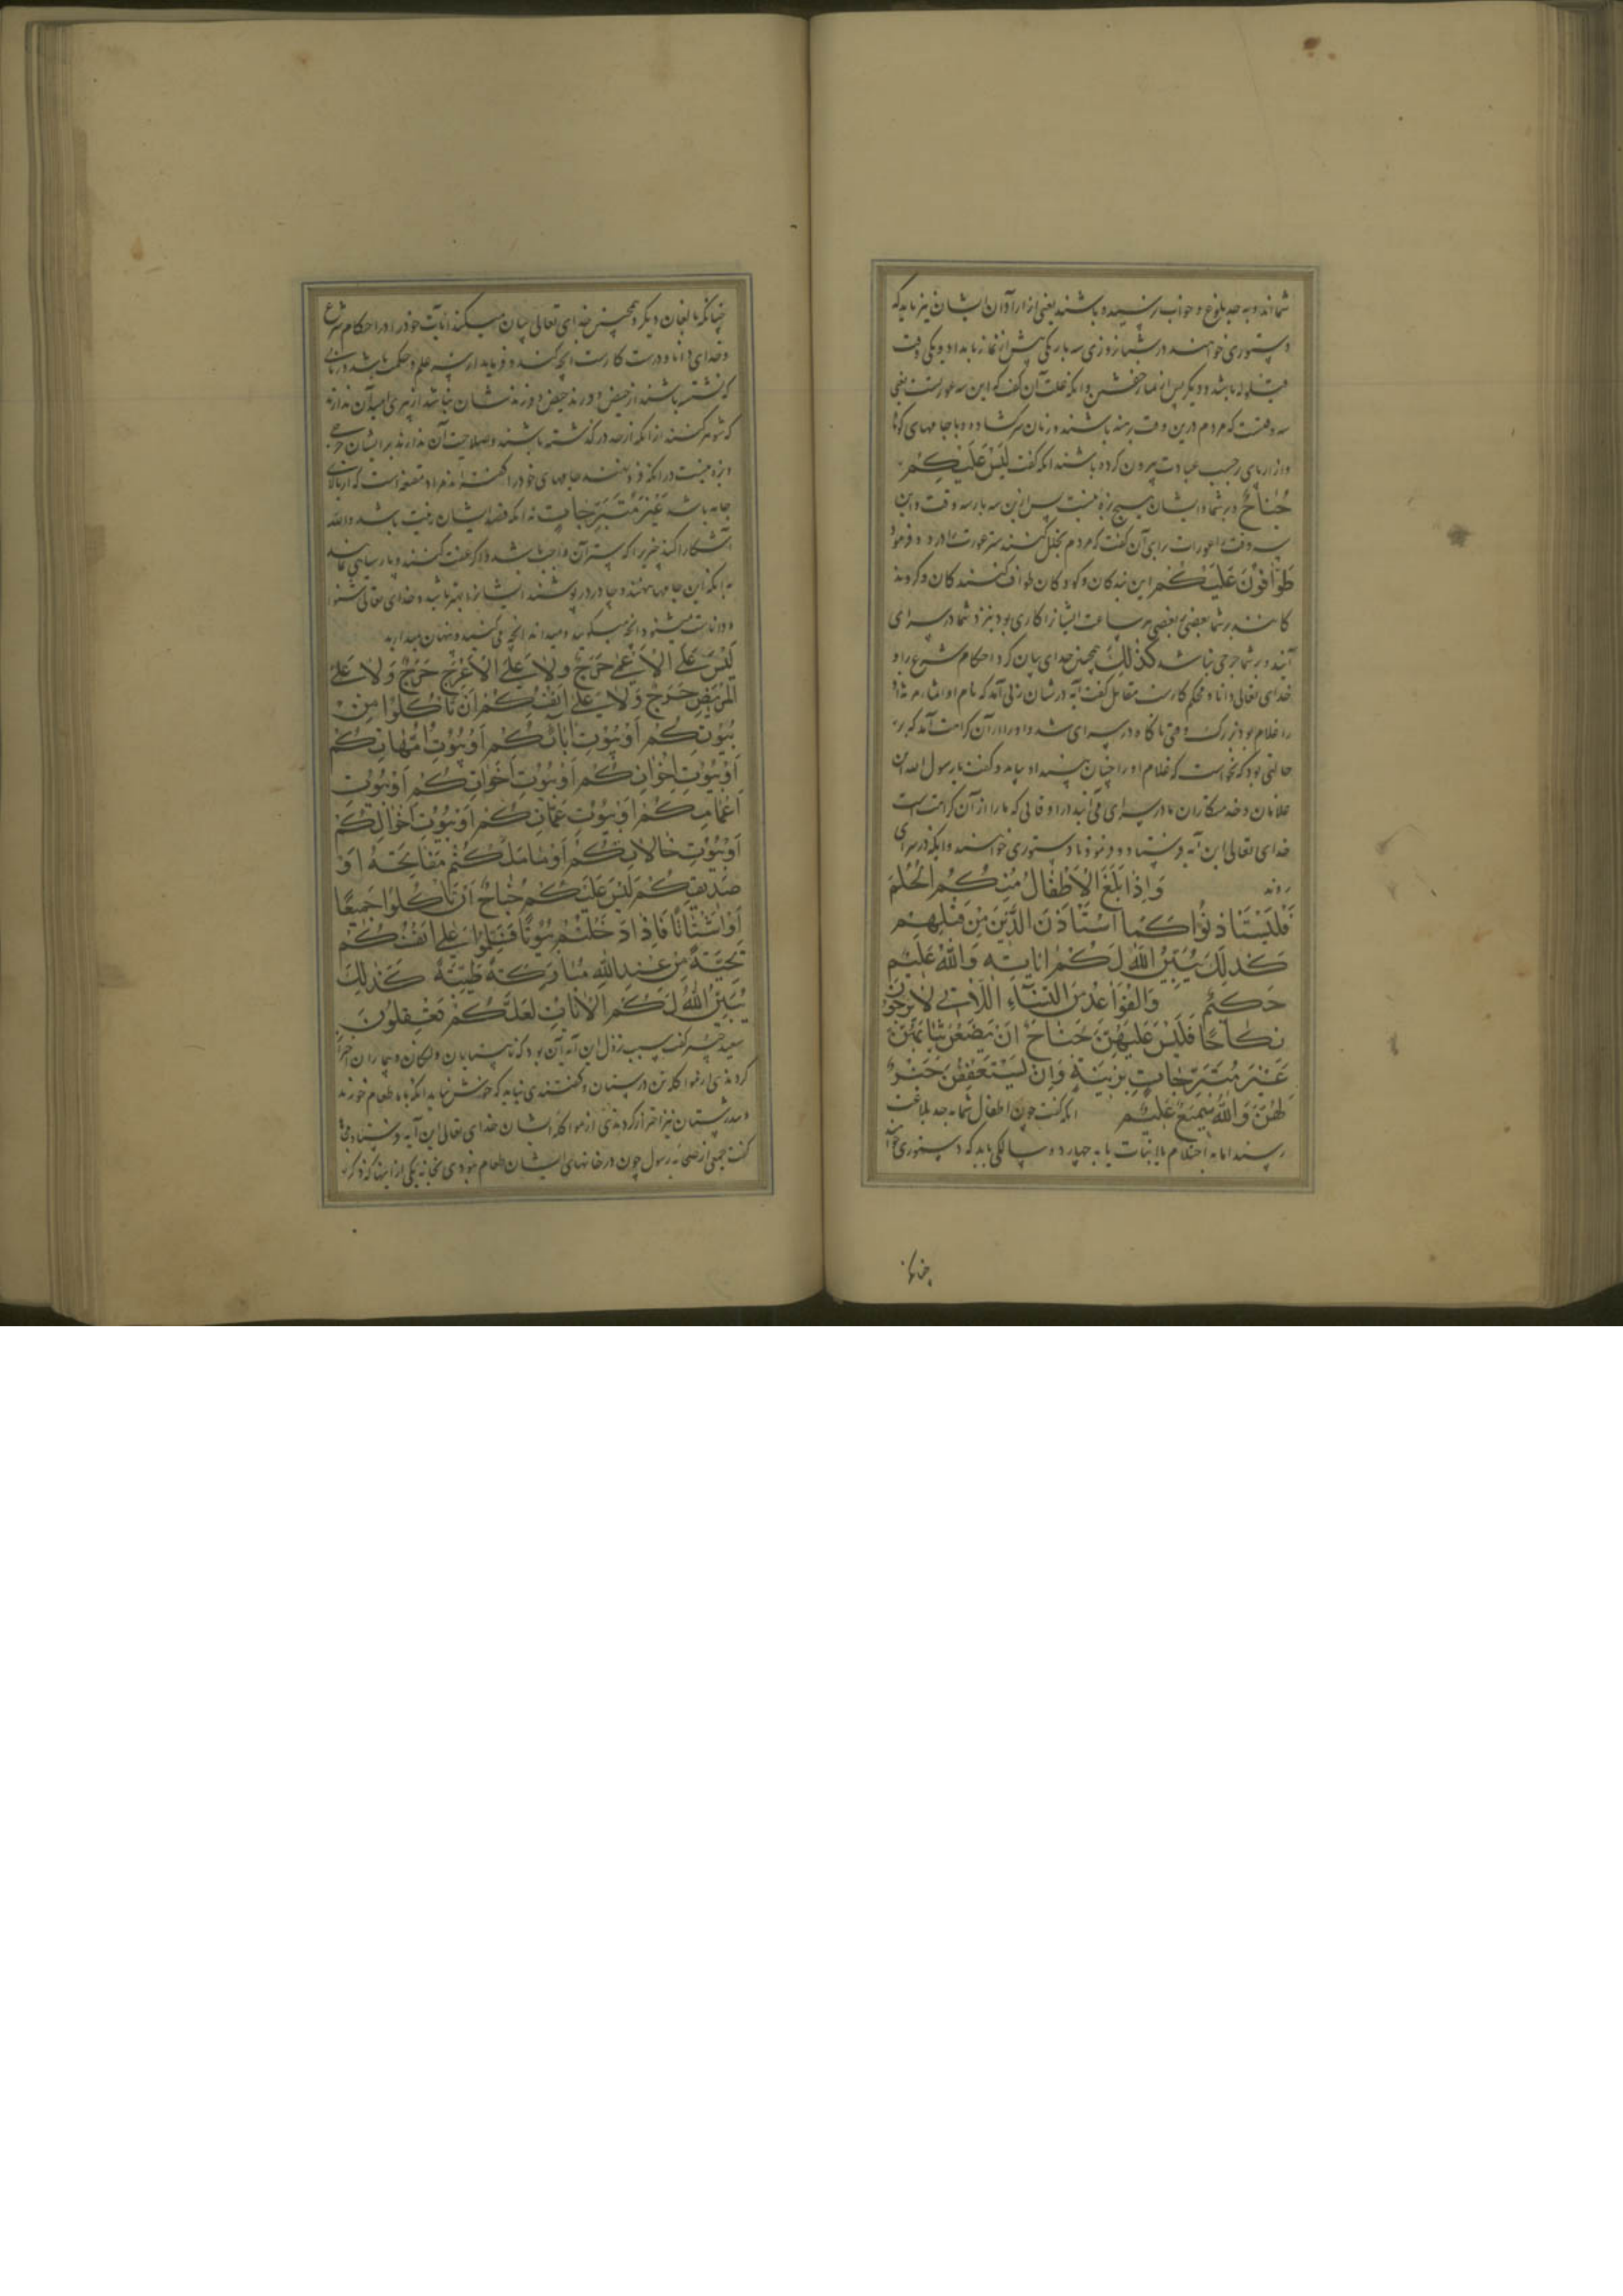 شما اند و به حد بلوغ و خواب نرسیده باشند یعنی از آزادان ایشان نیز باید که
دستوری خواهند در شبانروزی سه بار یکی پیش از نماز بامداد و یکی وقت
قیلوله باشد و دیگر پس از نماز خفتن و آنکه علت آن گفت که این سه عورتست یعنی
سه وقتست که مردم درین وقت برهنه باشند و زنان سر گشاده و با جامهای کوتا
و ازار پای بیرون کرده باشند آنکه گفت لَيْسَ عَلَيْكُمْ
جُنَاحٌ و بر شما و ایشان هیچ بزه نیست پس ازین سه بار سه وقت و این
سه وقت را عورات برای آن گفت که مردم کنند ستر عورت را در و فرمود
طَوَّافُونَ عَلَيْكُمْ این بندگان و کودکان طواف کنندگان و گردند
کانند بر شما بعضی بر بعضی هر ساعت ایشانرا کاری بود بنزد شما در سرای
آیند و بر شما حرجی نباشد كَذَلِكَ همچنین خدای بیان کرد احکام شرع را و
خدای تعالی دانا و محکم کارست مقاتل گفت آیه در شان زنی آمد که نام او اسما
را غلامی بود بزرگ وقتی ناگاه در سرای شد و او را از آن کراهت آمد که بر
حالتی بود که نخواست که غلام او را چنان بیند او بیامد و گفت یا رسول الله این
غلامان و خدمتکاران ما در سرای می آیند در اوقاتی که ما را از آن کراهت است
خدای تعالی این آیه فرستاد و فرمود تا دستوری خواهند و آنکه در سرای
روند وَإِذَا بَلَغَ الْأَطْفَالُ مِنْكُمُ الْحُلُمَ
فَلْيَسْتَأْذِنُوا كَمَا اسْتَأْذَنَ الَّذِينَ مِنْ قَبْلِهِمْ
كَذَلِكَ يُبَيِّنُ اللَّهُ لَكُمْ آيَاتِهِ وَاللَّهُ عَلِيمٌ
حَكِيمٌ وَالْقَوَاعِدُ مِنَ النِّسَاءِ اللَّاتِي لَا يَرْجُونَ
نِكَاحًا فَلَيْسَ عَلَيْهِنَّ جُنَاحٌ أَنْ يَضَعْنَ ثِيَابَهُنَّ
غَيْرَ مُتَبَرِّجَاتٍ بِزِينَةٍ وَإِنْ يَسْتَعْفِفْنَ خَيْرٌ
لَهُنَّ وَاللَّهُ سَمِيعٌ عَلِيمٌ آنکه گفت چون اطفال شما به حد بلاغت
رسند اما به احتلام یا انبات یا به چهارده سالگی باید که دستوری خوا
چنانکه
چنانکه بالغان دیگر و همچنین خدای تعالی بیان میکند آیات خود را و احکام شرع
و خدای دانا و درست کارست آنچه کند و فرماید از سر علم و حکمت باشد و زنانی
که نشسته باشند از حیض و فرزند حیض و فرزندشان نباشد از پیری امید آن ندارند
که شوهر کنند از آنکه از حد درگذشته باشند و صلاحیت آن ندارند بر ایشان حرجی
و بزه نیست در آنکه فرو نهند جامهای خود را گفته اند مراد مقنعه است که از بالای
جامه باشد غَيْرَ مُتَبَرِّجَاتٍ نه آنکه قصد ایشان زینت باشد و الله
آشکارا کند چیزی را که ستر آن واجب باشد و اگر عفت کنند و پارسایی نمایند
به آنکه این جامها نهند و چادر در پوشند ایشانرا بهتر باشد و خدای تعالی شنوا
و داناست میشنود آنچه میگویید و میداند آنچه می کنید و پنهان میدارید
لَيْسَ عَلَى الْأَعْمَى حَرَجٌ وَلَا عَلَى الْأَعْرَجِ حَرَجٌ وَلَا عَلَى
الْمَرِيضِ حَرَجٌ وَلَا عَلَى أَنْفُسِكُمْ أَنْ تَأْكُلُوا مِنْ
بُيُوتِكُمْ أَوْ بُيُوتِ آبَائِكُمْ أَوْ بُيُوتِ أُمَّهَاتِكُمْ
أَوْ بُيُوتِ إِخْوَانِكُمْ أَوْ بُيُوتِ أَخَوَاتِكُمْ أَوْ بُيُوتِ
أَعْمَامِكُمْ أَوْ بُيُوتِ عَمَّاتِكُمْ أَوْ بُيُوتِ أَخْوَالِكُمْ
أَوْ بُيُوتِ خَالَاتِكُمْ أَوْ مَا مَلَكْتُمْ مَفَاتِحَهُ أَوْ
صَدِيقِكُمْ لَيْسَ عَلَيْكُمْ جُنَاحٌ أَنْ تَأْكُلُوا جَمِيعًا
أَوْ أَشْتَاتًا فَإِذَا دَخَلْتُمْ بُيُوتًا فَسَلِّمُوا عَلَى أَنْفُسِكُمْ
تَحِيَّةً مِنْ عِنْدِ اللَّهِ مُبَارَكَةً طَيِّبَةً كَذَلِكَ
يُبَيِّنُ اللَّهُ لَكُمُ الْآيَاتِ لَعَلَّكُمْ تَعْقِلُونَ
سعید جبیر گفت سبب نزول این آیه آن بود که نابینایان و لنگان و بیماران احتراز
کردندی از مواکله تن درستان و گفتندی نباید که خوش نیاید آنکه با ما طعام خورند
و تندرستان نیز احتراز کردندی از مواکله ایشان خدای تعالی این آیه فرستاد
گفت جمعی از صحابه رسول چون در خانهای ایشان طعام نبودی بخانه یکی از اینها که ذکر